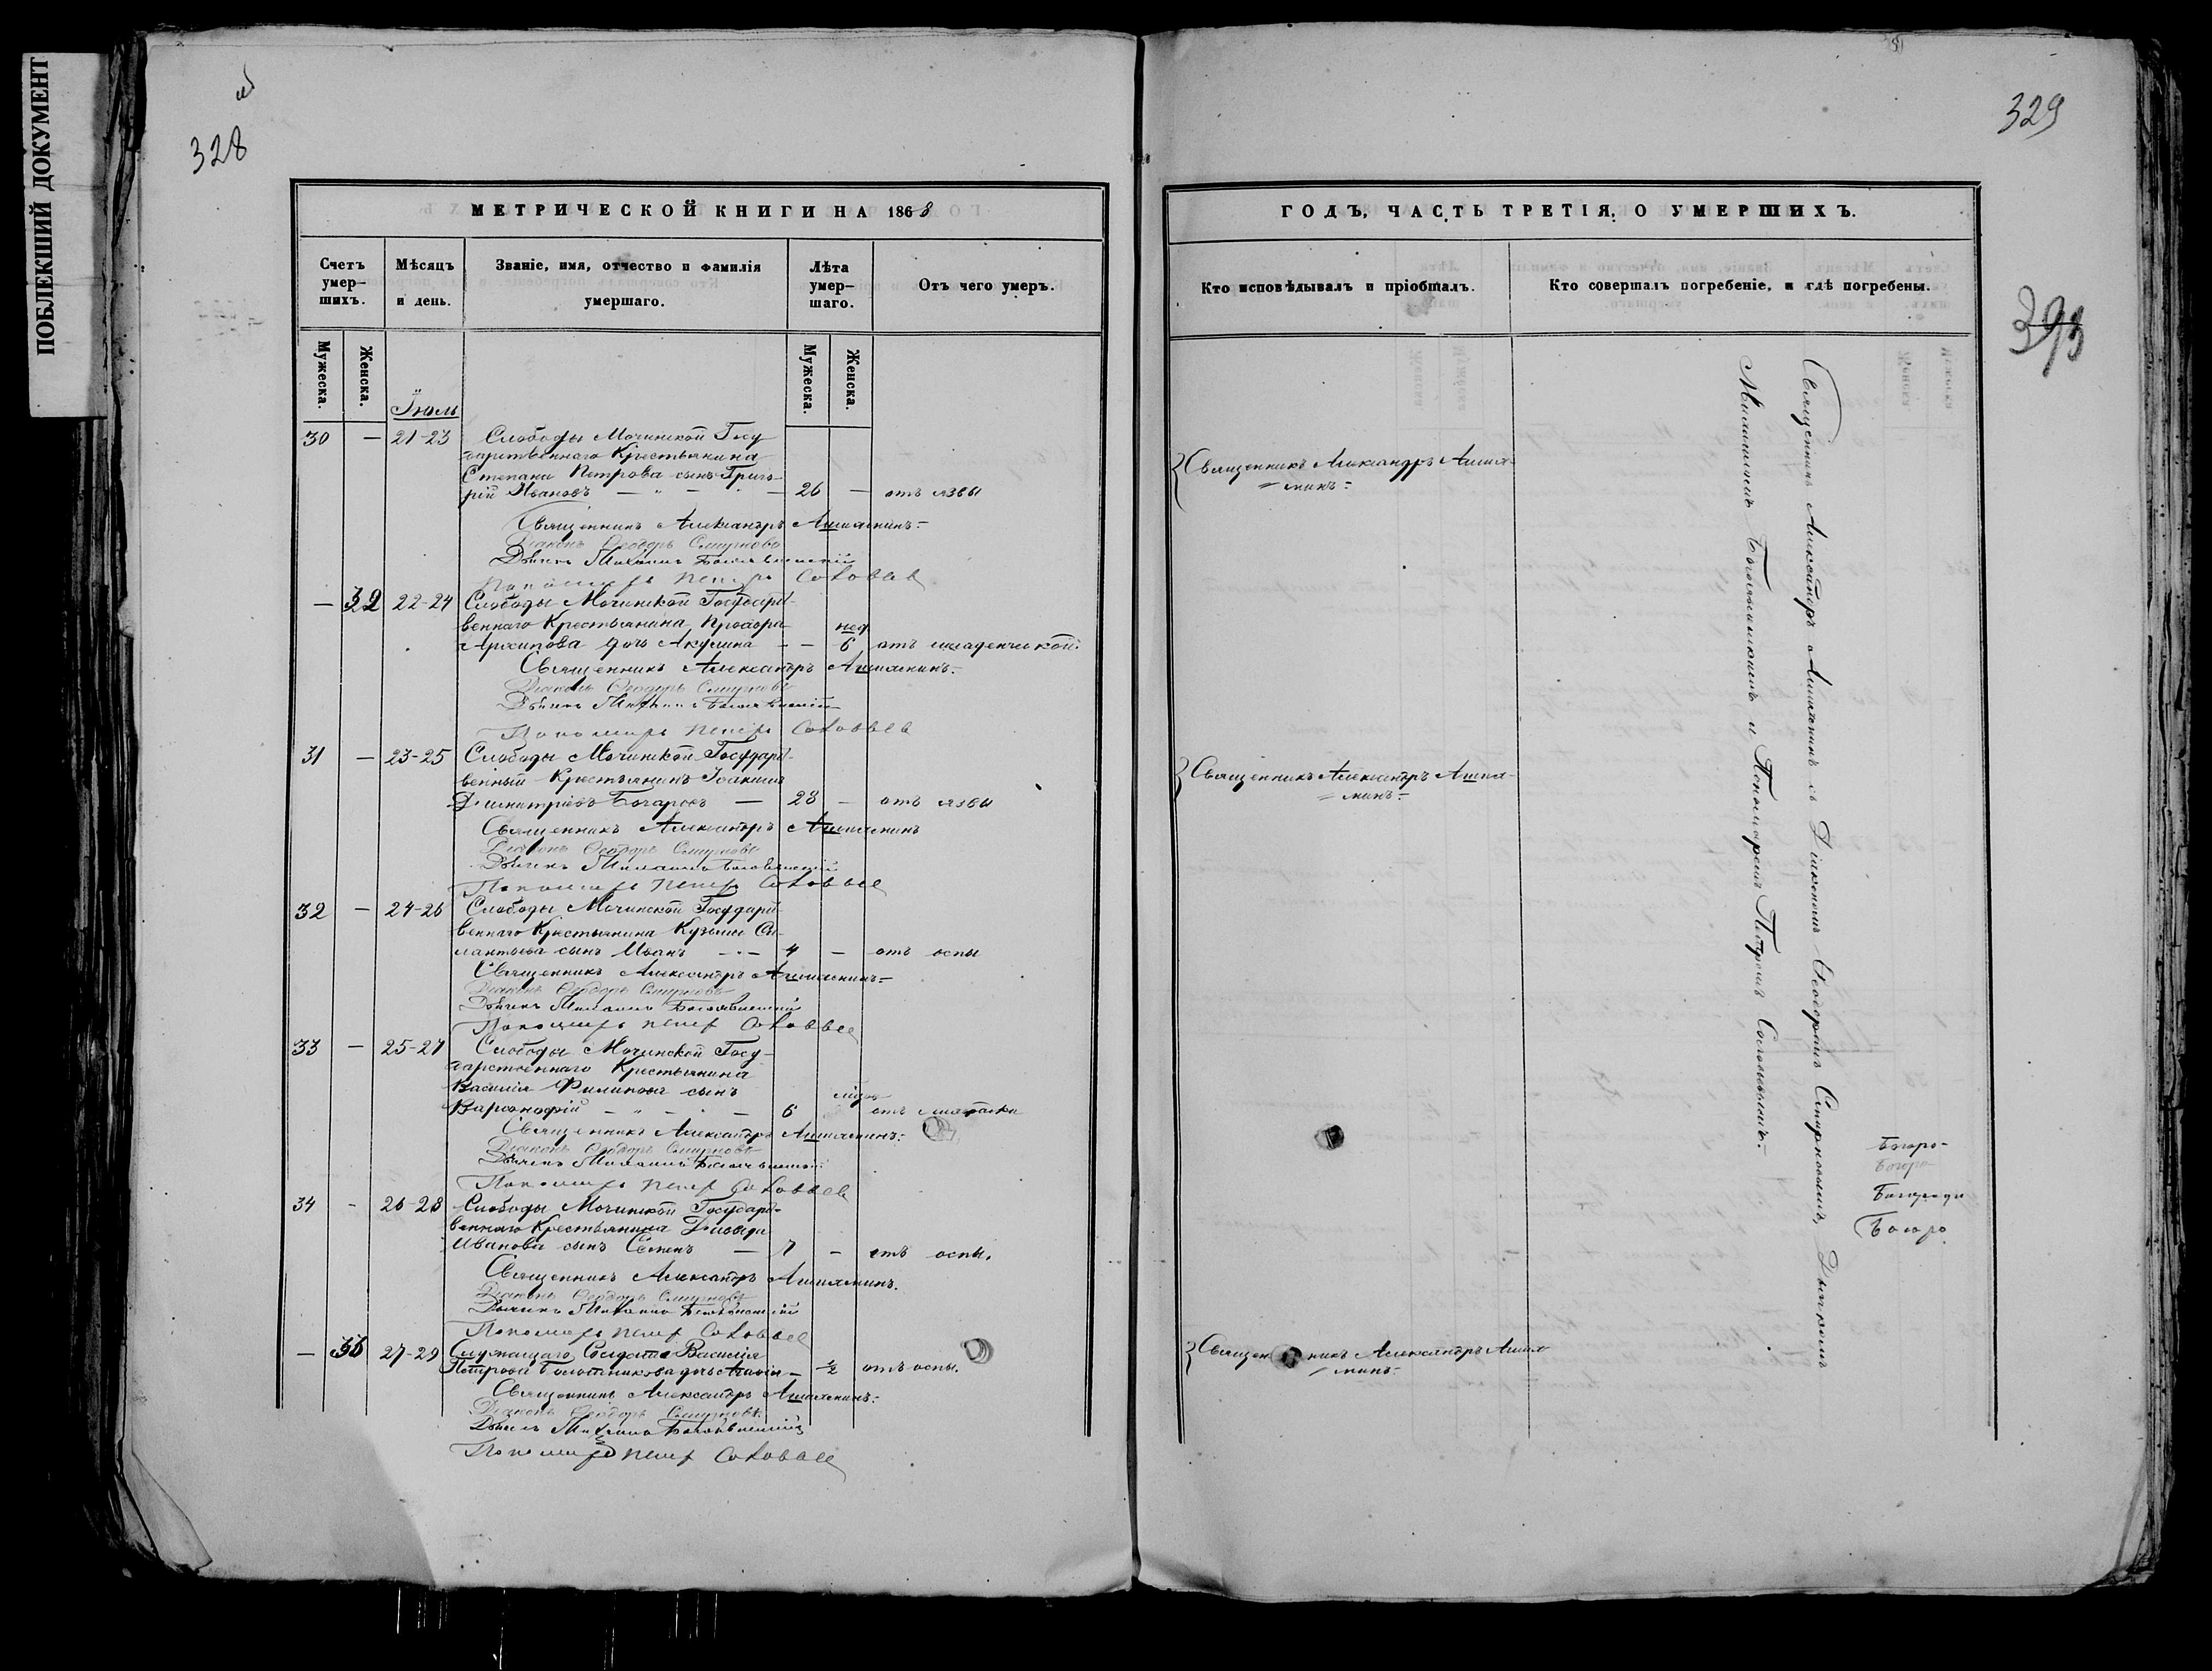 ПОБЛЕКШИЙ ДОКУМЕНТ
328
МЕТРИЧЕСКОЙ КНИГИ НА 1868
Счетъ умер-
шихъ.
Мѣсяцъ
и день.
Званіе, имя, отчество и фамилія
умершаго.
Лѣта
умер-
шаго.
Отъ чего умеръ.
Мужеска.
Женска.
Мужеска.
Женска.
Іюль
30 — 21-23 Слободы Мочинской Госу
дарственнаго Крестьянина
Степана Петрова сынъ Григо-
рій Ивановъ — 26 — отъ язвы
Священникъ Александръ
Діаконъ Ѳеодоръ Смирновъ
Дьячекъ Михаилъ Богоявленскій
Пономарь Петръ Соловьев
— 32 22-24 Слободы Мочинской Государст-
веннаго Крестьянина Прохора
нед.
Архипова дочь Акулина — — 6 отъ младенческой
Священникъ Александръ
Діаконъ Ѳеодоръ Смирновъ
Дьячекъ Михаилъ Богоявленскій
Пономарь Петръ Соловьев
31 — 23-25 Слободы Мочинской Государст-
венный Крестьянинъ Іоакимъ
Димитріевъ Бочаровъ — 23 — отъ язвы
Священникъ Александръ
Діаконъ Ѳеодоръ Смирновъ
Дьячекъ Михаилъ Богоявленскій
Пономарь Петръ Соловьев
32 — 24-26 Слободы Мочинской Государст-
веннаго Крестьянина Кузьмы
сынъ Иванъ — 4 — отъ оспы
Священникъ Александръ
Діаконъ Ѳеодоръ Смирновъ
Дьячекъ Михаилъ Богоявленскій
Пономарь Петръ Соловьев
33 — 25-27 Слободы Мочинской Госу-
дарственнаго Крестьянина
Василія Филипова сынъ
Варсонофій — 6 отъ
Священникъ Александръ
Діаконъ Ѳеодоръ Смирновъ
Дьячекъ Михаилъ Богоявленскій
Пономарь Петръ Соловьев
34 - 26-28 Слободы Мочинской Государст-
веннаго Крестьянина Давида
Иванова сынъ Семенъ — 7 — отъ оспы.
Священникъ Александръ
Діаконъ Ѳеодоръ Смирновъ
Дьячекъ Михаилъ Богоявленскій
Пономарь Петръ Соловьев
— 33 27-29 Служащаго Солдата Василія
Петрова дочь — ½ отъ оспы.
Священникъ Александръ
Діаконъ Ѳеодоръ Смирновъ
Дьячекъ Михаилъ Богоявленскій
Пономарь Петръ Соловьев
329
393
ГОДЪ, ЧАСТЬ ТРЕТІЯ, О УМЕРШИХЪ.
Кто исповѣдывалъ и пріобщалъ.
Кто совершалъ погребеніе, и гдѣ погребены.
Священникъ Александръ
Священникъ Александръ
Священникъ Александръ
Священникъ Александръ съ Діакономъ Ѳеодоромъ Смирновымъ, Дьячкомъ
Михаиломъ Богоявленскимъ и Пономаремъ Петромъ Соловьевымъ.
Богоро-
Богоро
Богороди
Богоро